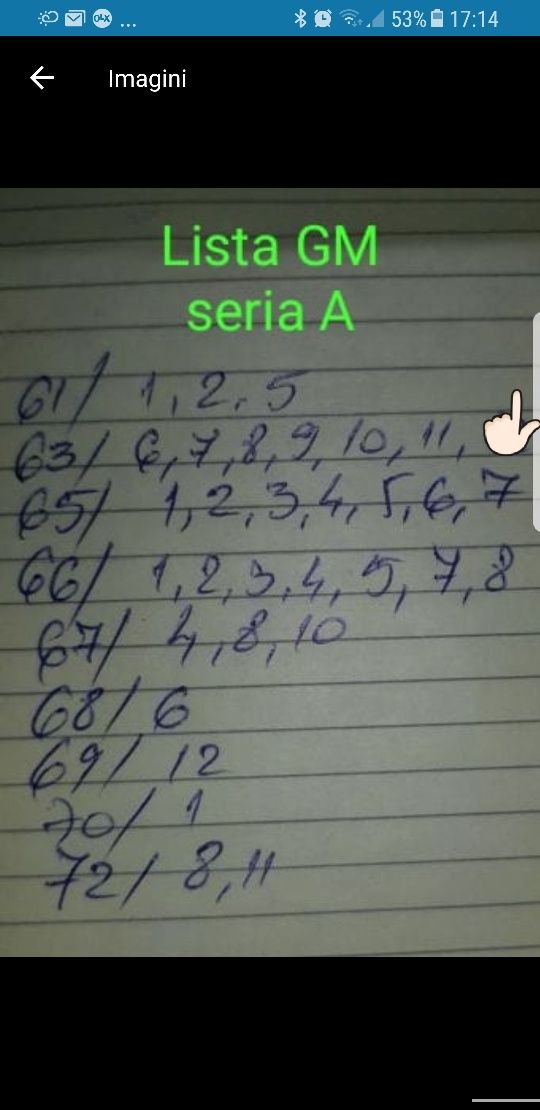 ... 53% 17:14
Imagini
Lista GM
seria A
61/ 1, 2, 5
63/ 6, 7, 8, 9, 10, 11,
65/ 1, 2, 3, 4, 5, 6, 7
66/ 1, 2, 3, 4, 5, 7, 8
67/ 4, 8, 10
68/ 6
69/ 12
70/ 1
72/ 8, 11